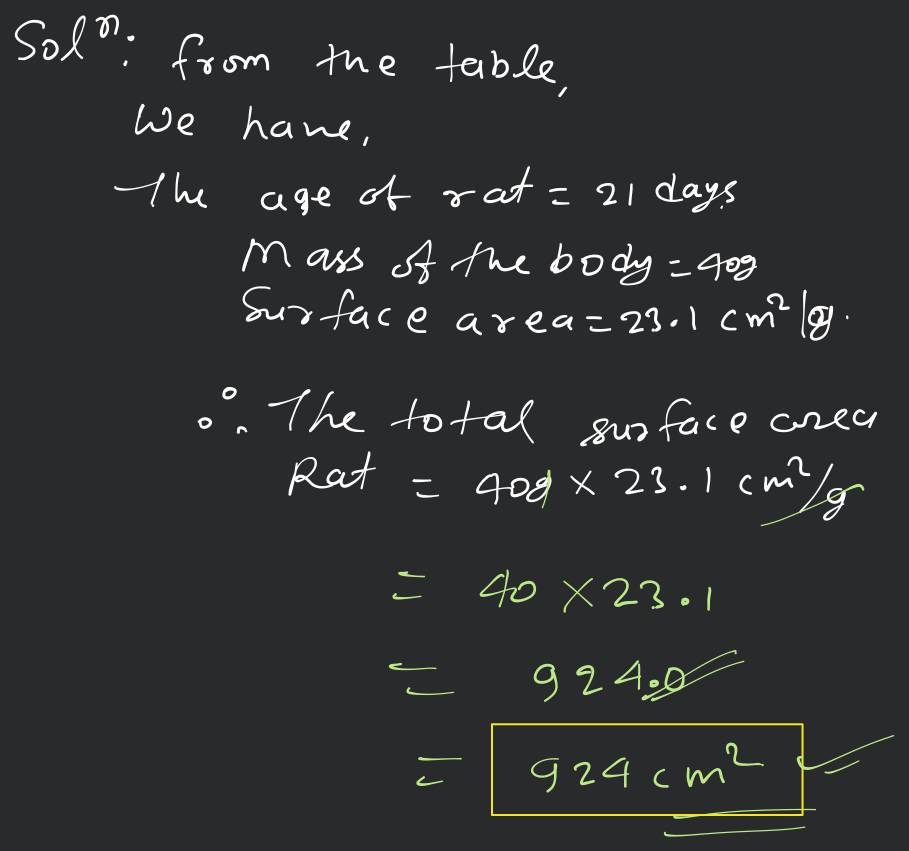 Solⁿ: from the table,
We have,
The age of rat = 21 days
Mass of the body = 40g
Surface area = 23.1 cm²/g.
∴ The total surface area
Rat = 40g × 23.1 cm²/g
= 40 × 23.1
= 924.0
= 924 cm²